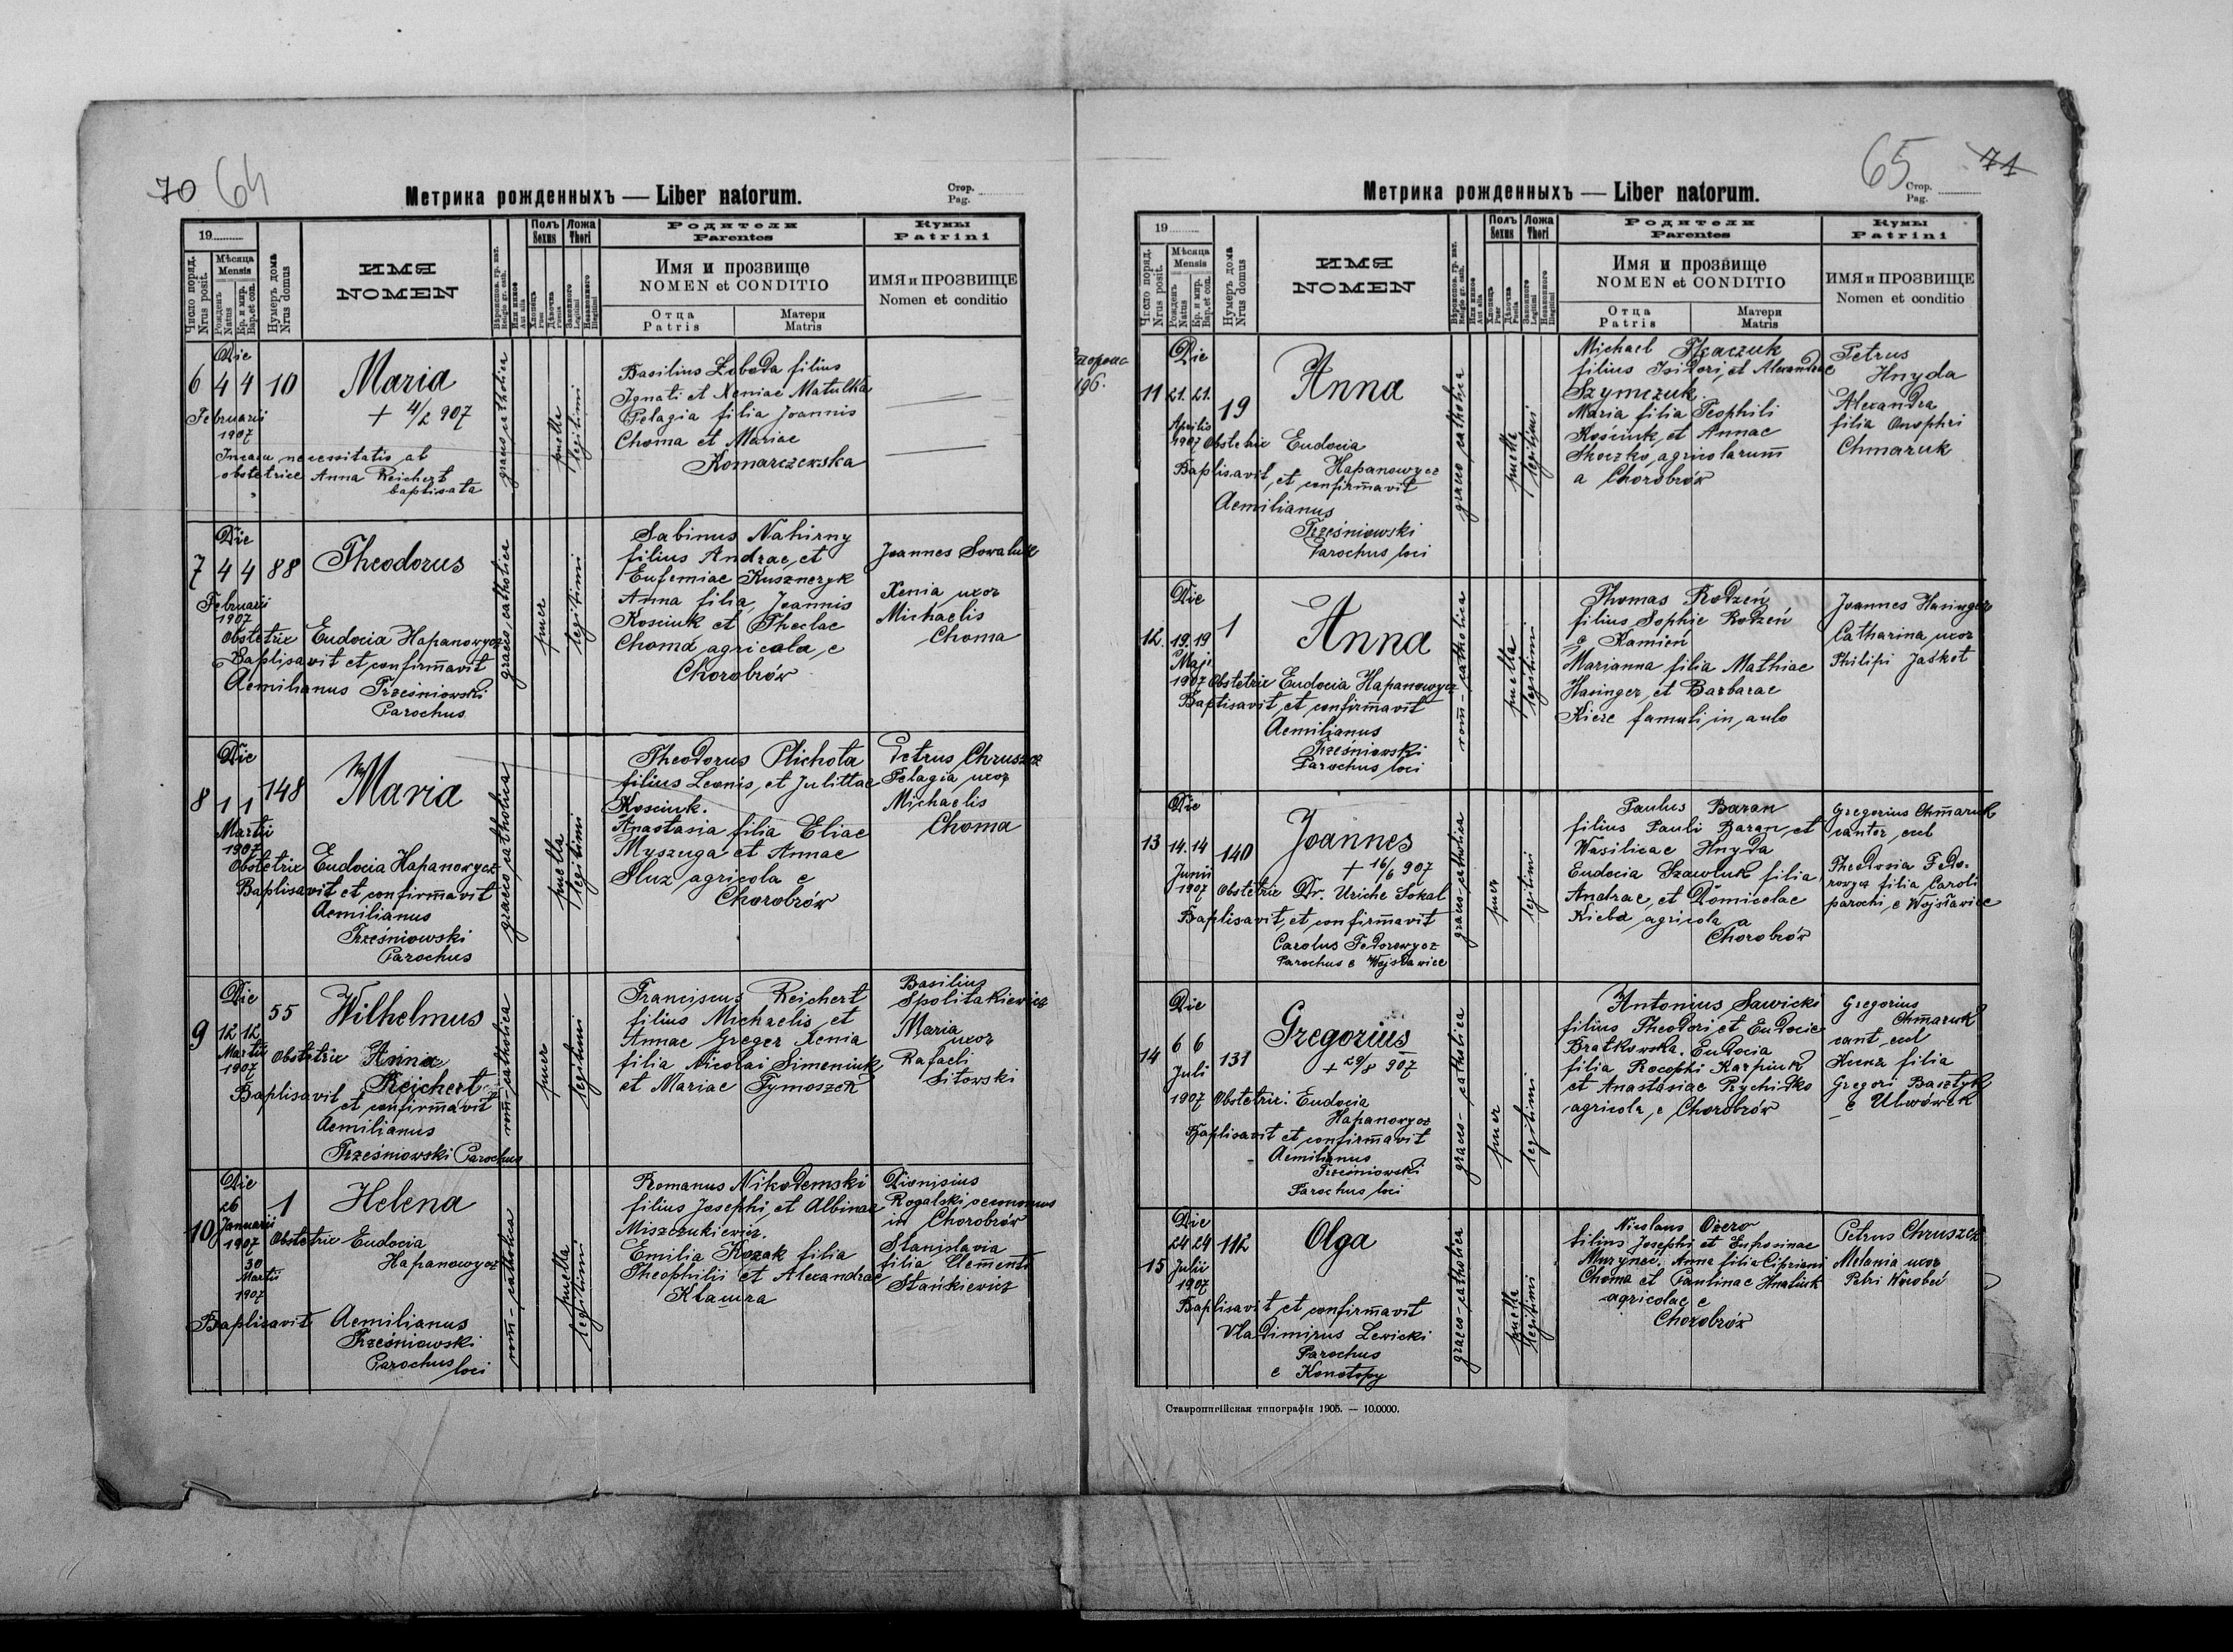 70 64
Метрика рожденныхъ — Liber natorum.
Стор.
Pag.
19
Число поряд.
Nrus posit.
Мѣсяца
Mensis
Рожденъ
Natus
Кр. и мир.
Bap. et con.
Нумеръ дома
Nrus domus
ИМЯ
NOMEN
Полъ
Sexus
Хлопецъ
Puer
Дѣвочка
Puella
Ложа
Thori
Законного
Legitimi
Незаконного
Illegitimi
Родители
Parentes
Имя и прозвище
NOMEN et CONDITIO
Отца
Patris
Матери
Matris
Кумы
Patrini
ИМЯ и ПРОЗВИЩЕ
Nomen et conditio
Die
6 4 4 10
Februarii
1907
Maria
+ 4/2 907
In casu necessitatis ab
obstetrice Anna Reichert
baptisata
graeco catholica
puella
legitimi
Basilius Łoboda filius
Ignati et Xeniae Matulka
Pelagia filia Joannis
Choma et Mariae
Komarczewska
Die
7 4 4 88
Februarii
1907
Theodorus
Obstetrix Eudocia Hapanowycz
Baptisavit et confirmavit
Aemilianus Trześniowski
Parochus
graeco catholica
puer
legitimi
Sabinus Nahirny
filius Andrae, et
Eufemiae Kuszneryk
Anna filia Joannis
Kosciuk et Theclae
Choma agricola e
Chorobrów
Joannes Sowaluk
Xenia uxor
Michaelis
Choma
Die
8 1 1 148
Martii
1907
Maria
Obstetrix Eudocia Hapanowycz
Baptisavit et confirmavit
Aemilianus
Trześniowski
Parochus
graeco catholica
puella
legitimi
Theodorus Plichota
filius Leonis, et Julittae
Kosciuk.
Anastasia filia Eliae
Myszuga et Annae
Sluz agricola e
Chorobrów
Petrus Chruszcz
Pelagia uxor
Michaelis
Choma
Die
9 12 12 55
Martii
1907
Wilhelmus
Obstetrix Anna
Reichert
Baptisavit
et confirmavit
Aemilianus
Trześniowski Parochus
rom-catholica
puer
legitimi
Franciscus Reichert
filius Michaelis et
Annae Greger Xenia
filia Nicolai Simeniuk
et Mariae Tymoszek
Basilius
Spolitakiewicz
Maria
uxor
Rafaeli
Sitowski
Die
26
10 Januarii 1
1907
30
Martii
1907
Helena
Obstetrix Eudocia
Hapanowycz
Baptisavit Aemilianus
Trześniowski
Parochus loci
rom-catholica
puella
legitimi
Romanus Nikodemski
filius Josephi, et Albinae
Miszczukiewicz.
Emilia Kozak filia
Theophilii et Alexandrae
Dionisius
Rogalski oeconomus
in Chorobrów
Stanislavia
filia Clementi
Stańkiewicz
65 71
Метрика рожденныхъ — Liber natorum.
Стор.
Pag.
19
Число поряд.
Nrus posit.
Мѣсяца
Mensis
Рожденъ
Natus
Кр. и мир.
Bap. et con.
Нумеръ дома
Nrus domus
ИМЯ
NOMEN
Полъ
Sexus
Хлопецъ
Puer
Дѣвочка
Puella
Ложа
Thori
Законного
Legitimi
Незаконного
Illegitimi
Родители
Parentes
Имя и прозвище
NOMEN et CONDITIO
Отца
Patris
Матери
Matris
Кумы
Patrini
ИМЯ и ПРОЗВИЩЕ
Nomen et conditio
196.
Die
11 21. 21. 19
Aprilis
1907
Anna
Obstetrix Eudocia
Hapanowycz
Baptisavit, et confirmavit
Aemilianus
Trześniowski
Parochus loci
graeco catholica
puella
legitimi
Michael Tkaczuk
filius Isidori, et Alexandrae
Szymczuk.
Maria filia Teophili
Kościuk, et Annae
agricolarum
a Chorobrów
Petrus
Hnyda
Alexandra
filia Onophri
Chmaruk
Die
12. 19. 19 1
Maji
1907
Anna
Obstetrix Eudocia Hapanowycz
Baptisavit, et confirmavit
Aemilianus
Trześniowski
Parochus loci
rom-catholica
puella
legitimi
Thomas Rodzeń
filius Sophie Rodzeń
e Kamień
Marianna filia Mathiae
Hasinger, et Barbarae
Kierc famuli in aulo
Joannes Hasinger
Catharina uxor
Philipi Jaśkot
Die
13 14. 14 140
Junii
1907
Joannes
+ 16/6 907
Obstetrix Dr. Uriche Sokal
Baptisavit, et confirmavit
Carolus Fedorowycz
Parochus e Wojsławice
graeco-catholica
puer
legitimi
Paulus Baran
filius Pauli Baran, et
Wasilicae Hnyda
Eudocia Szawluk filia
Andrae, et Domicelae
Kieba agricola a
Chorobrów
Gregorius Chmaruk
cantor, eccl
Theodosia Fedo-
rowycz filia Caroli
parochi, e Wojsławice
Die
14 6 6 131
Juli
1907
Gregorius
+ 29/8 907
Obstetrix: Eudocia
Hapanowycz
Baptisavit et confirmavit
Aemilianus
Trześniowski
Parochus loci
graeco-catholica
puer
legitimi
Antonius Sawicki
filius Theodori, et Eudocie
Bratkowska. Eudocia
filia Procophi Karpiuk
et Anastasiae Prychidko
agricola, e Chorobrów
Gregorius
Chmaruk
cant, eccl
filia
Gregori Basztyk
e Uhwówek
Die
24 24 112
15 Julii
1907
Olga
Baptisavit, et confirmavit
Vladimirus Lewicki
Parochus
e Konotopy
graeco-catholica
puella
legitimi
Nicolaus Ozero
filius Josephi et Eufrosinae
Murynec. Anna filia Cipriani
Choma et Paulinae Hnatiuk
agricolae e
Chorobrów
Petrus Chruszcz
Melania uxor
Petri Worobeć
Ставропигійская типографія 1905. — 10.0000.